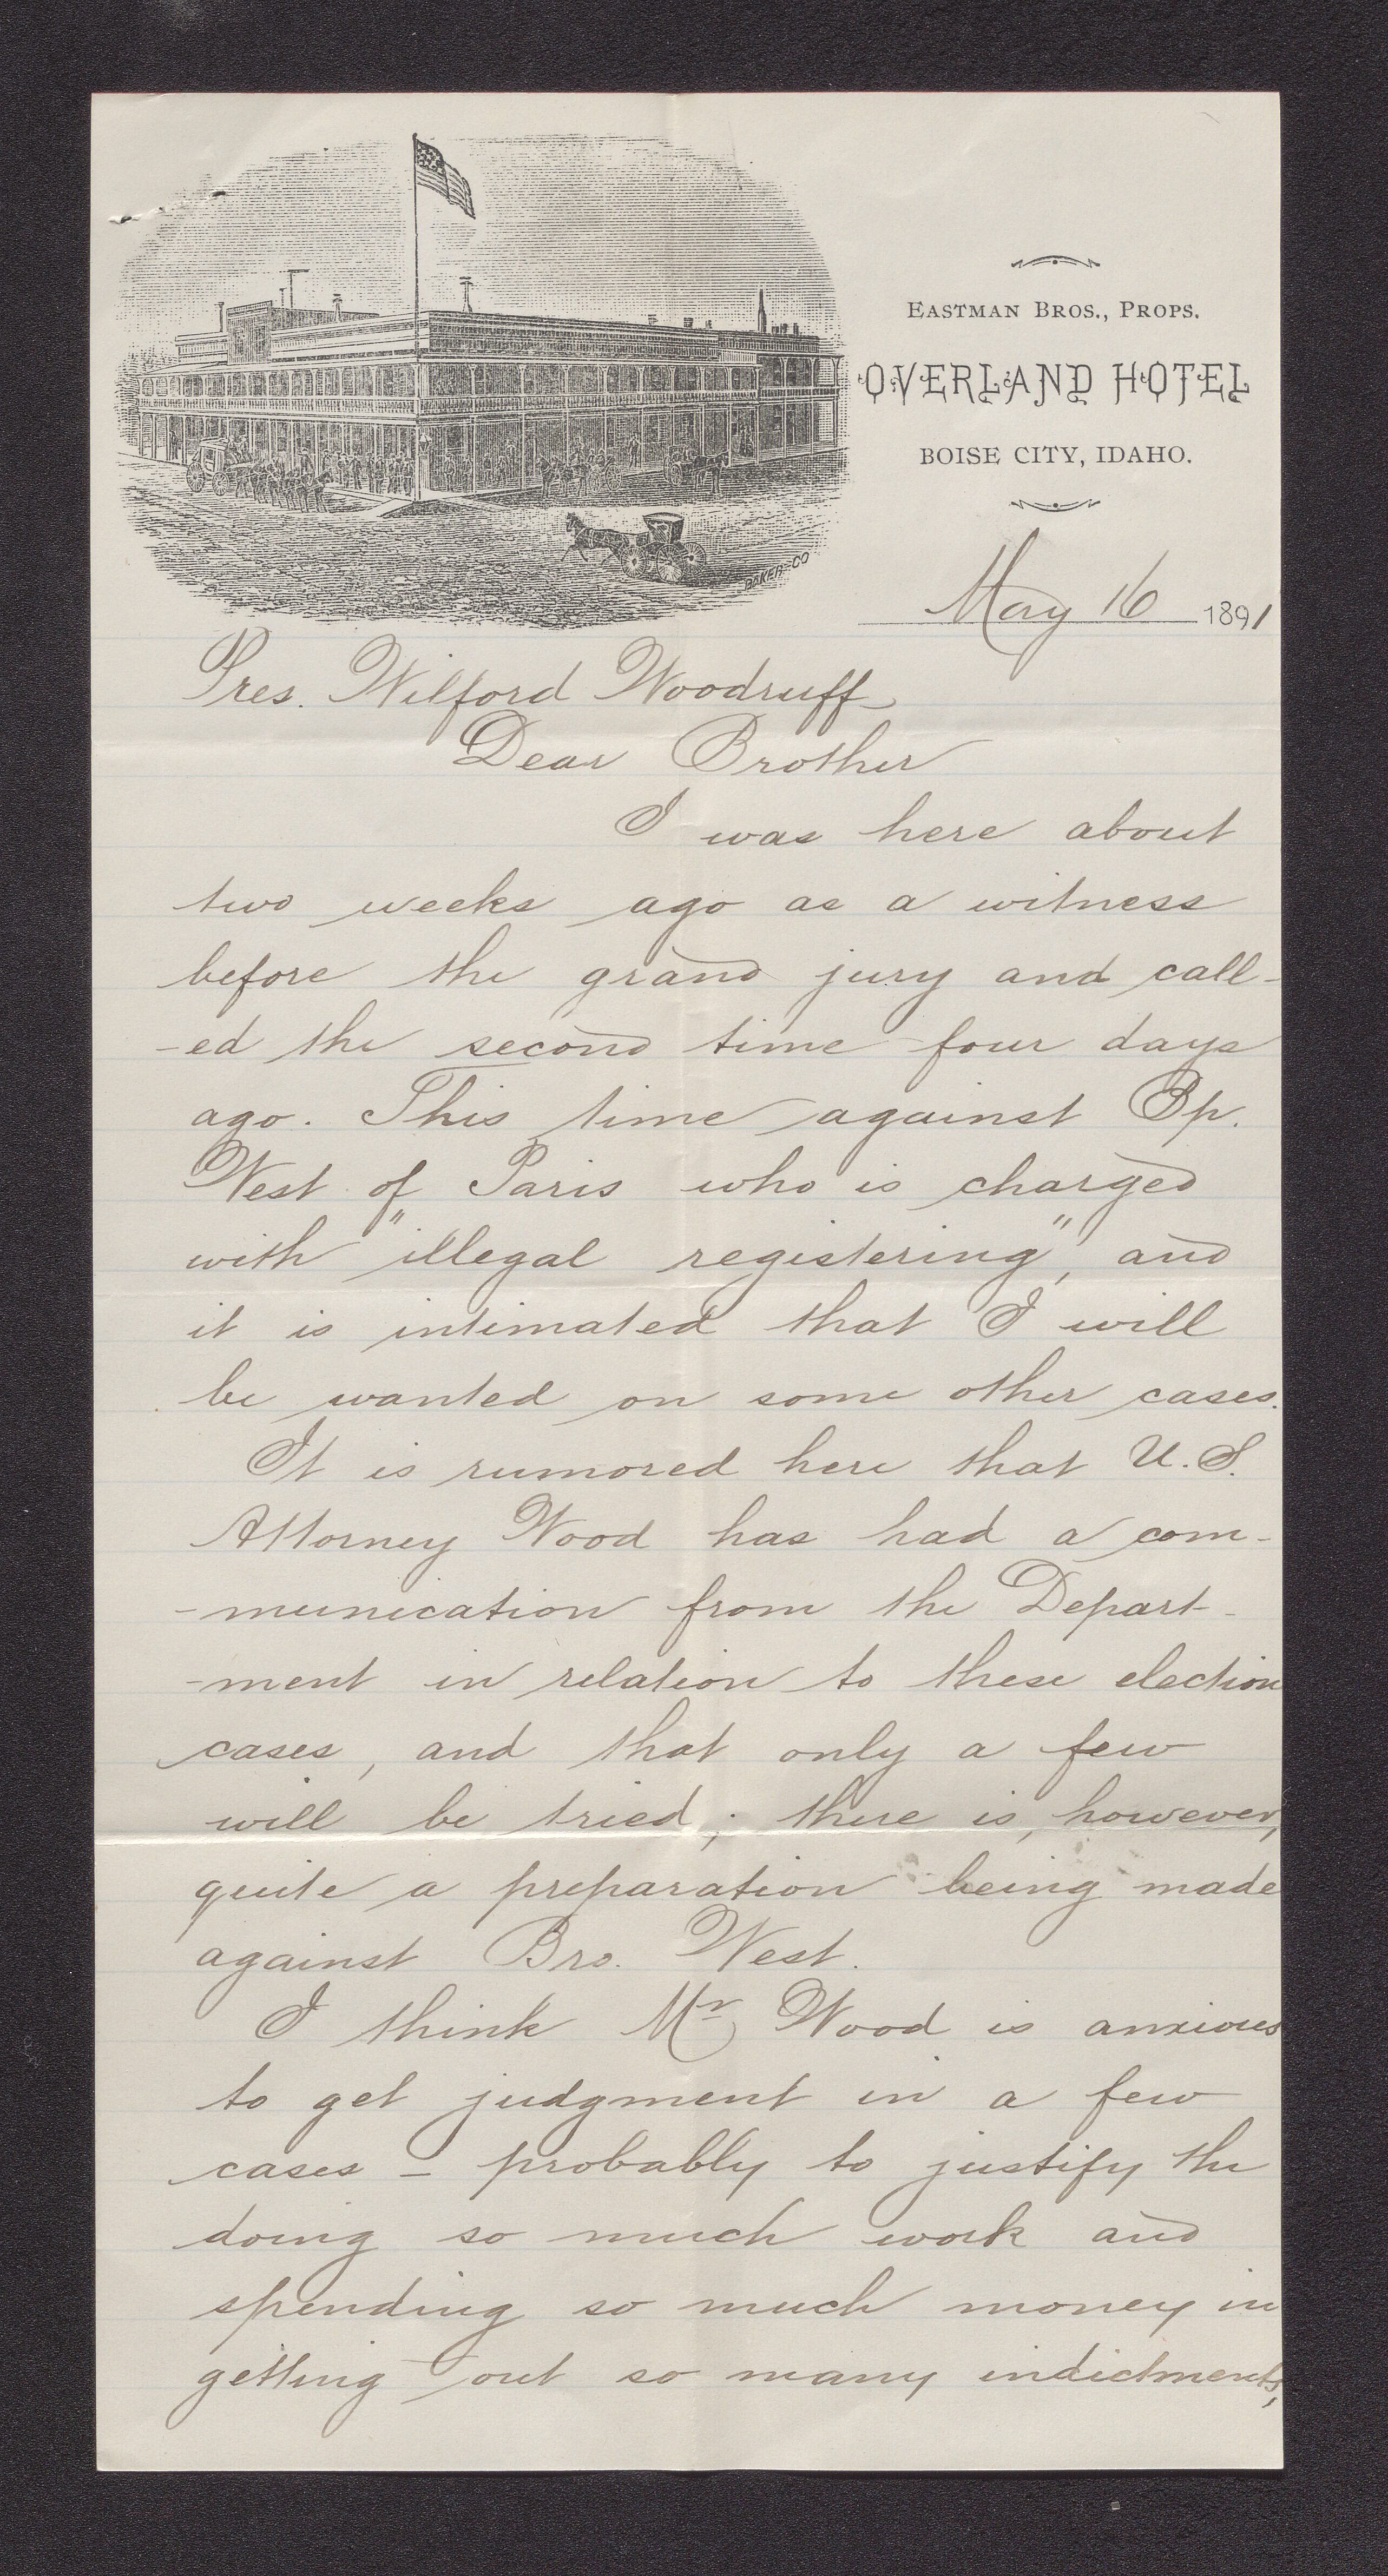 EASTMAN BROS., PROPS.
OVERLAND HOTEL
BOISE CITY, IDAHO.
BAKER-CO
May 16 1891
Pres. Wilford Woodruff
Dear Brother
I was here about
two weeks ago as a witness
before the grand jury and call-
-ed the second time four days
ago. This time against Bp.
West of Paris who is charged
with "illegal registering", and
it is intimated that I will
be wanted on some other cases.
It is rumored here that U.S.
Attorney Wood has had a com-
-munication from the Depart-
-ment in relation to these election
cases, and that only a few
will be tried; there is, however,
quite a preparation being made
against Bro. West.
I think Mr Wood is anxious
to get judgment in a few
cases - probably to justify the
doing so much work and
spending so much money in
getting out so many indictments,